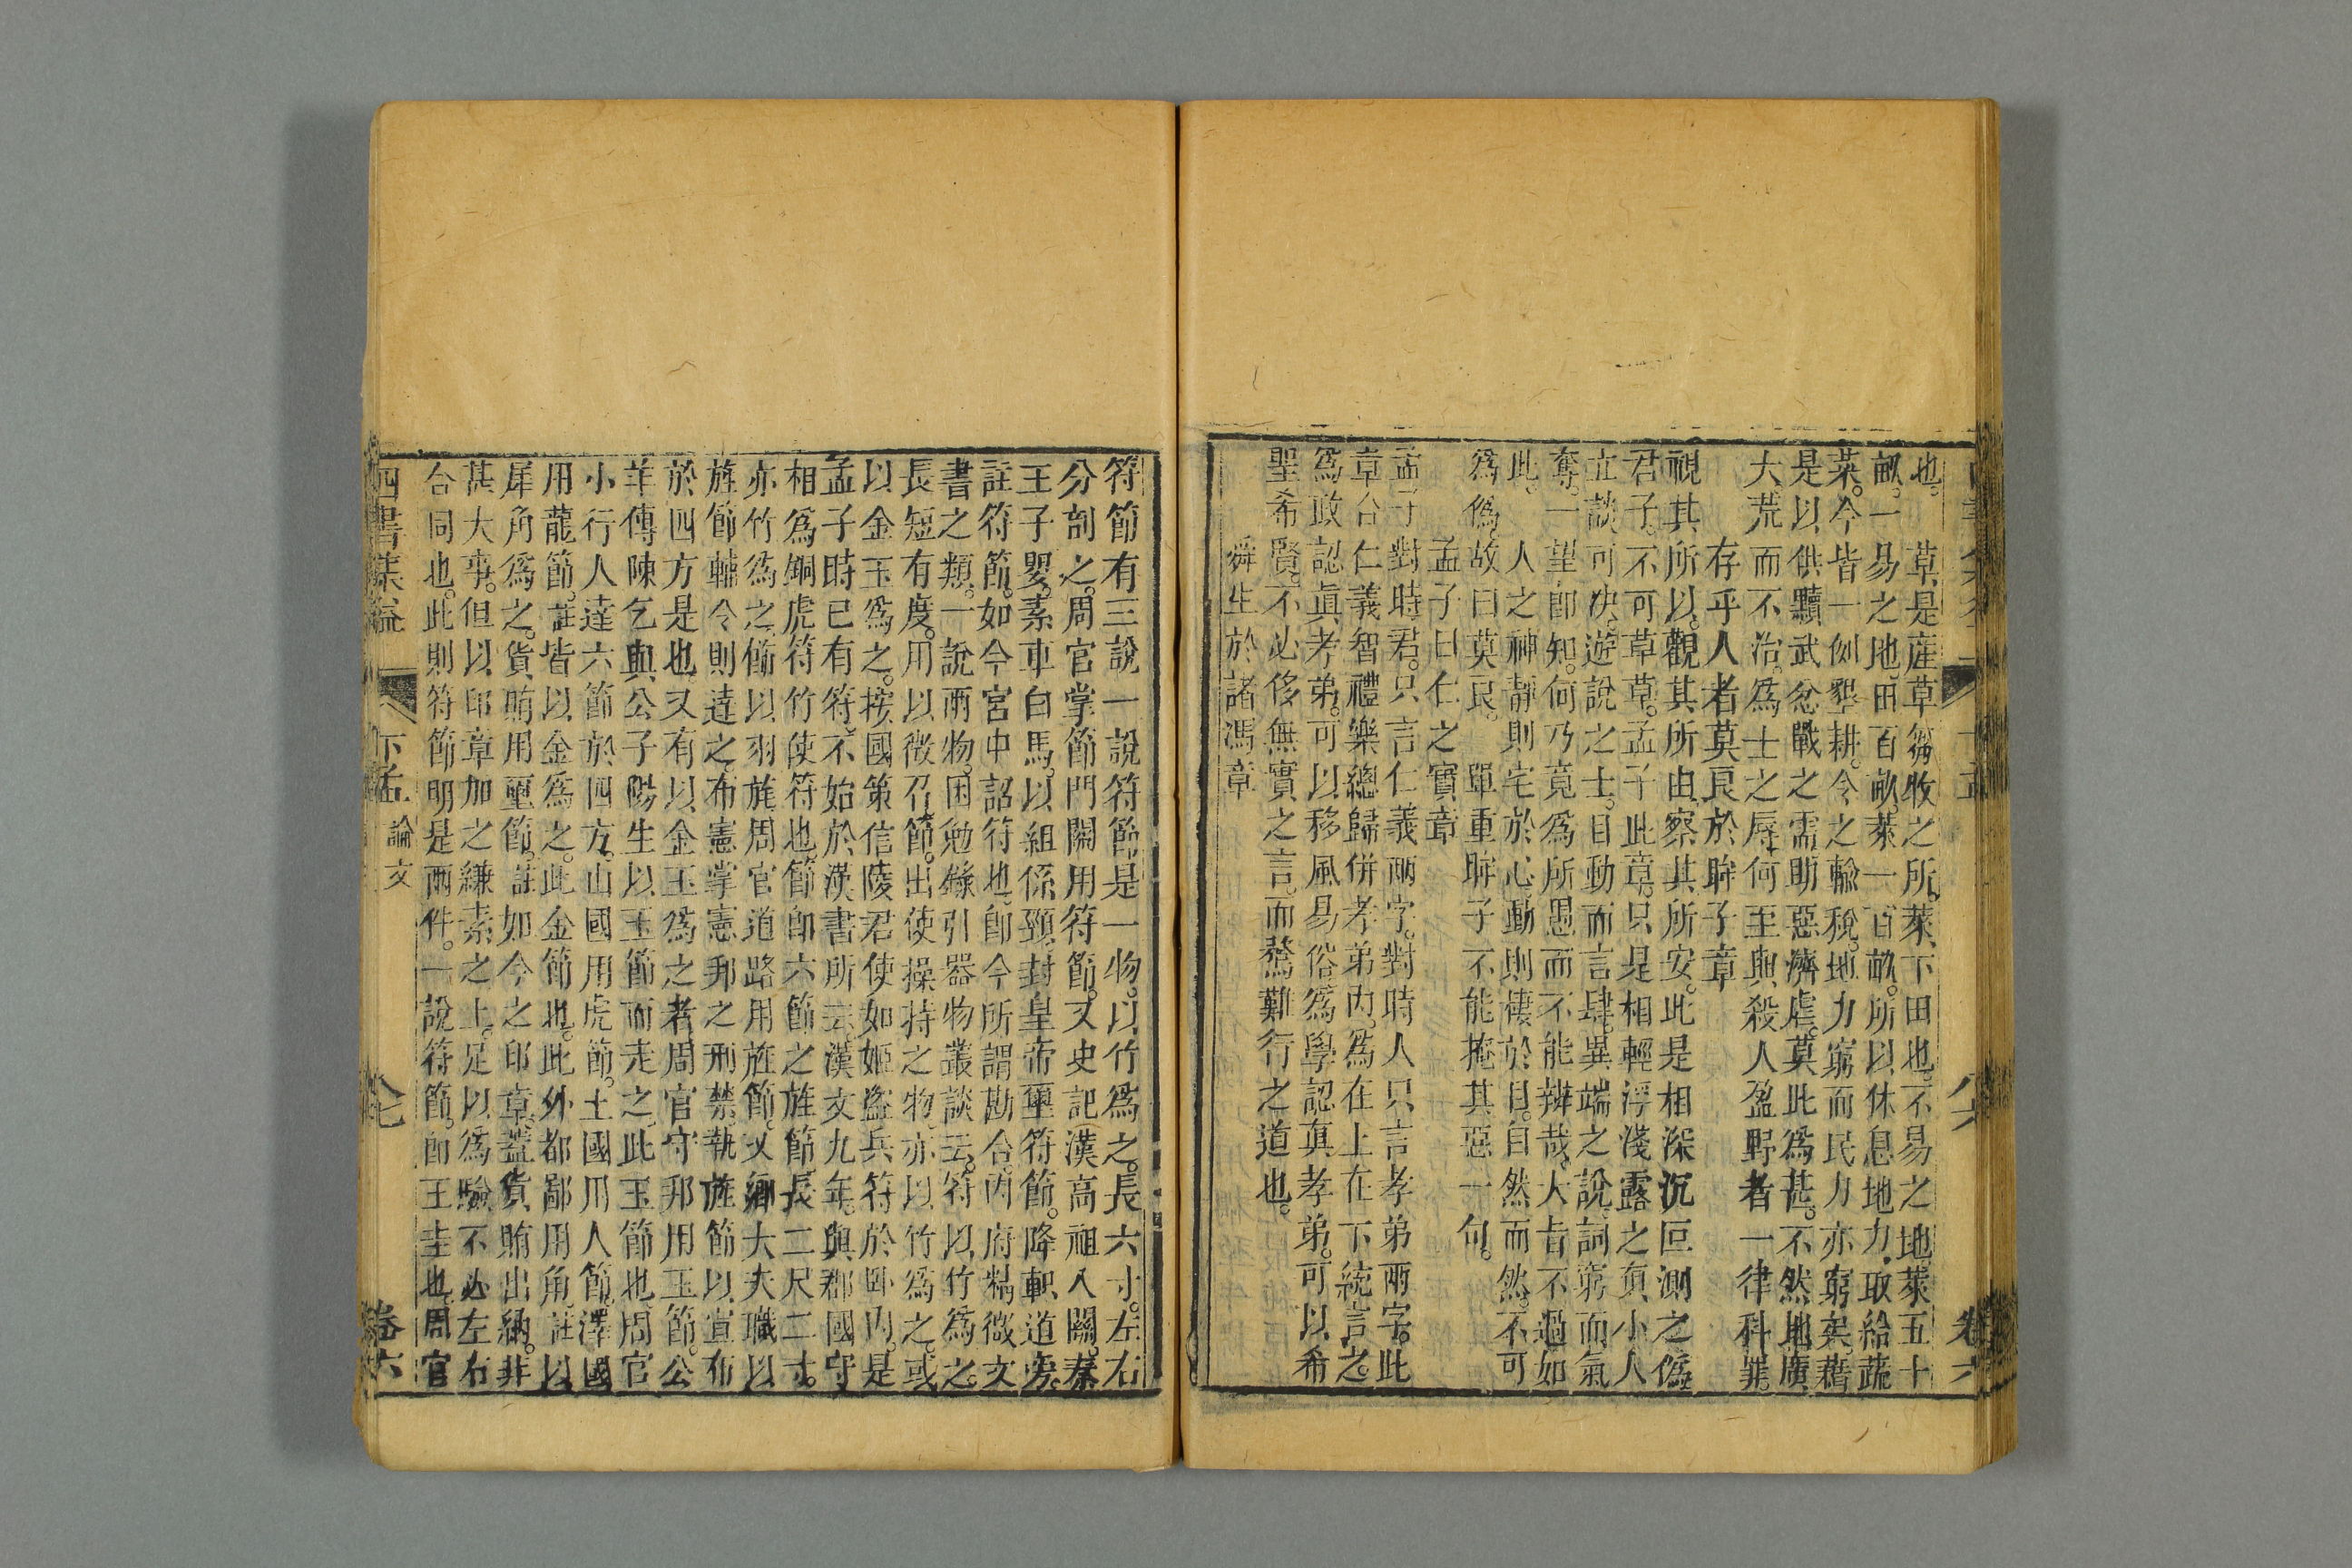 也。草是産草芻牧之所。萊下田也。不易之地。萊五十
畝。一易之地。田百畝。萊一百畝。所以休息地力。取給蔬
菜。今皆一例墾耕。令之輸稅。地力窮而民力亦窮矣。藉
是以供黷武忿戰之需。助惡濟虐。莫此為甚。不然地廣
大荒而不治。為士之辱。何至與殺人盈野者一律科罪。
存乎人者莫良於眸子章
視其所以。觀其所由。察其所安。此是相深沉叵測之僞
君子。不可草草。孟子此章。只是相輕浮淺露之真小人
立談可决。遊說之士。目動而言肆。異端之說。詞窮而氣
奪。一望即知。何乃竟為所愚而不能辨哉。大旨不過如
此。人之神靜則宅於心。動則棲於目。自然而然。不可
爲僞。故曰莫良。單重眸子不能掩其惡一句。
孟子曰仁之實章
孟子對時君。只言仁義兩字。對時人只言孝弟兩字。此
章合仁義智禮樂總歸併孝弟內。為在上在下統言之。
爲政認眞孝弟。可以移風易俗。為學認眞孝弟。可以希
聖希賢。不必侈無實之言。而騖難行之道也。
舜生於諸馮章
符節有三說。一說符節是一物。以竹爲之。長六寸。左右
分剖之。周官掌節門關用符節。又史記漢高祖入關。秦
王子嬰。素車白馬。以組係頸。封皇帝璽符節。降軹道旁。
註符節。如今宮中詔符也。即今所謂勘合。內府精微文
書之類。一說兩物。困勉錄引器物叢談云。符以竹為之。
長短有度。用以徵召。節。出使操持之物。亦以竹為之。或
以金玉爲之。按國策信陵君使如姬盜兵符於臥內。是
孟子時已有符。不始於漢書所云。漢文九年。與郡國守
相爲銅虎符竹使符也。節即六節之旌節。長二尺二寸。
亦竹為之。飾以羽旄。周官道路用旌節。又鄉大夫職以
旌節輔令則達之。布憲掌憲邦之刑禁。執旌節以宣布
於四方是也。又有以金玉為之者。周官守邦用玉節。公
羊傳陳乞與公子陽生以玉節而走之。此玉節也。周官
小行人達六節於四方。山國用虎節。土國用人節。澤國
用龍節。註皆以金為之。此金節也。此外都鄙用角。註以
犀角爲之。貨賄用璽節。註如今之印章。蓋貨賄出納。非
甚大事。但以印章加之縑素之上。足以為驗。不必左右
合同也。此則符節明是兩件。一說符節。卽玉圭也。周官
下孟 論文 卷六